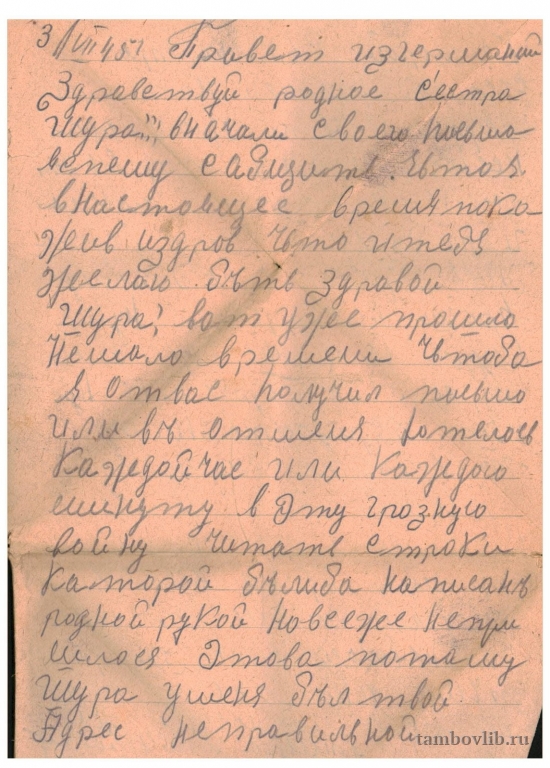 3/VIII 45г Привет изгерманий
Здравствуй родное сестра
Шура!!! вначали своего письма
спешу саабщить. Что я
внастоящее время пока
жив издров Что итебя
желаю быть здравой
Шура! вот уже прошло
Немало времени Чтоба
я отвас получил письмо
или въ отменя хотелось
Каждой час или Каждою
минуту в Эту грозную
войну Читать строки
каторой былиба написанъ
родной рукой Новсеже Непри
шлося Этова потому
Шура уменя был твой
Адрес неправильной
tambovlib.ru